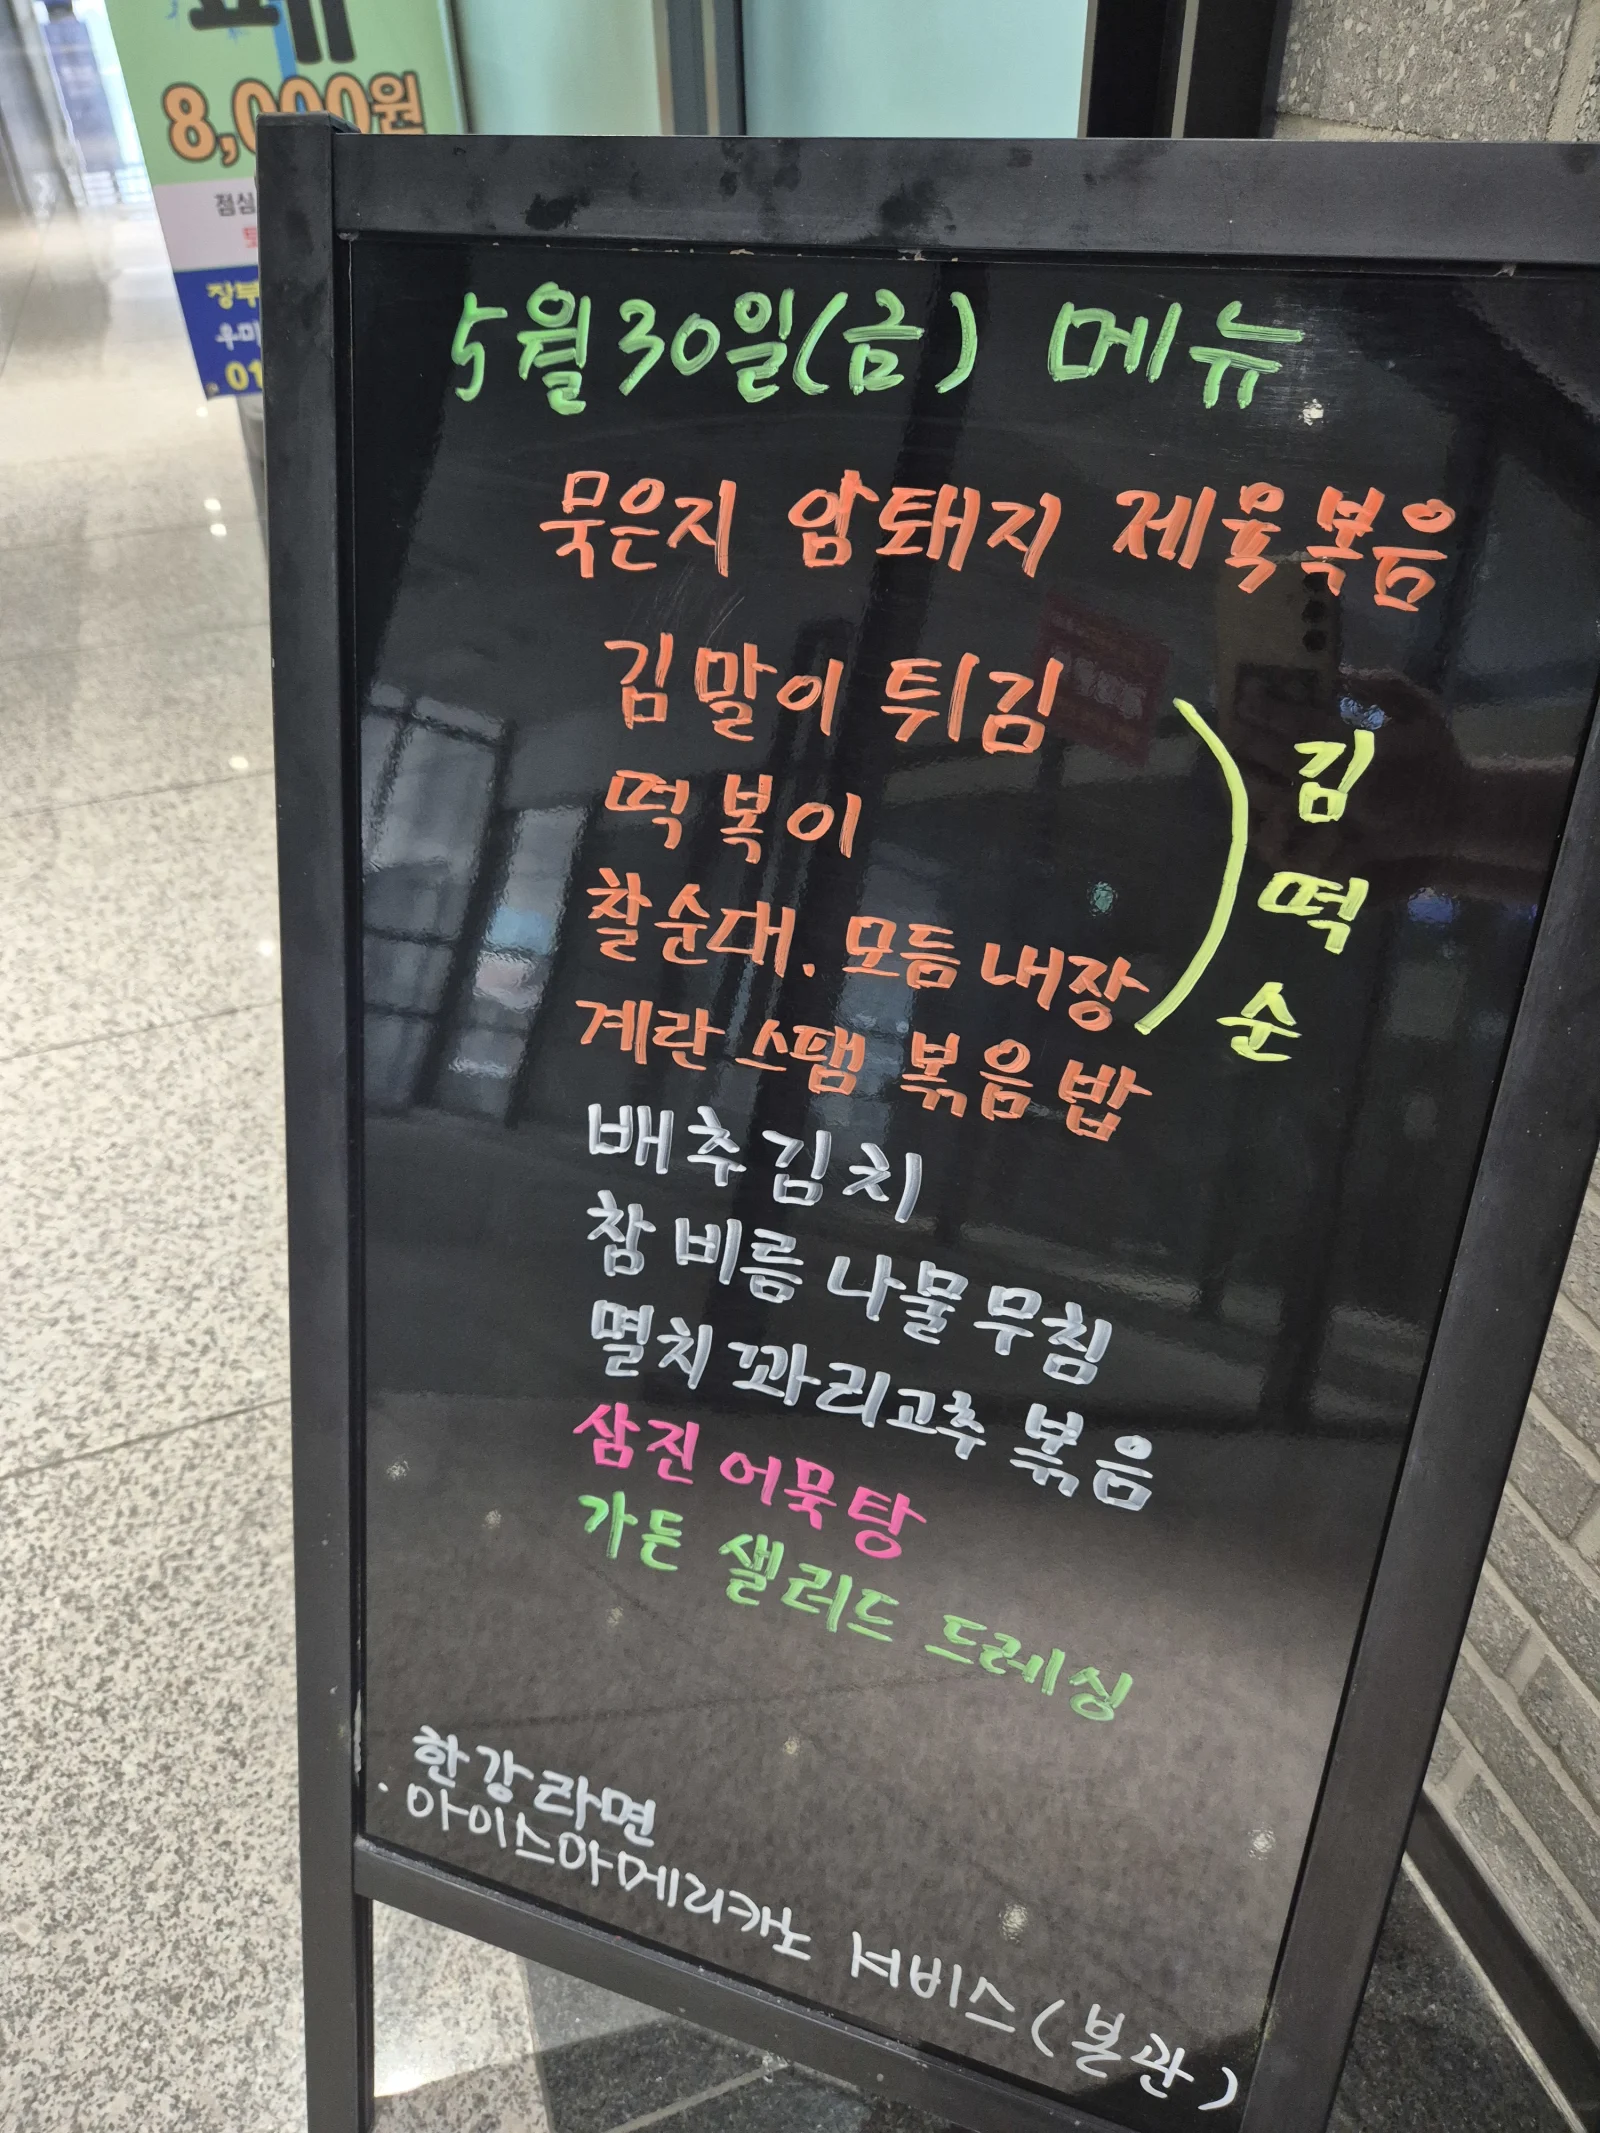 8,000원
점심
장부
우미
01
5월30일(금) 메뉴
묵은지 암퇘지 제육볶음
김말이 튀김
떡볶이
찰순대. 모듬내장
김
떡
순
계란스팸 볶음밥
배추김치
참비름나물무침
멸치꽈리고추볶음
삼진어묵탕
가든 샐러드 드레싱
한강라면
아이스아메리카노 서비스(본관)